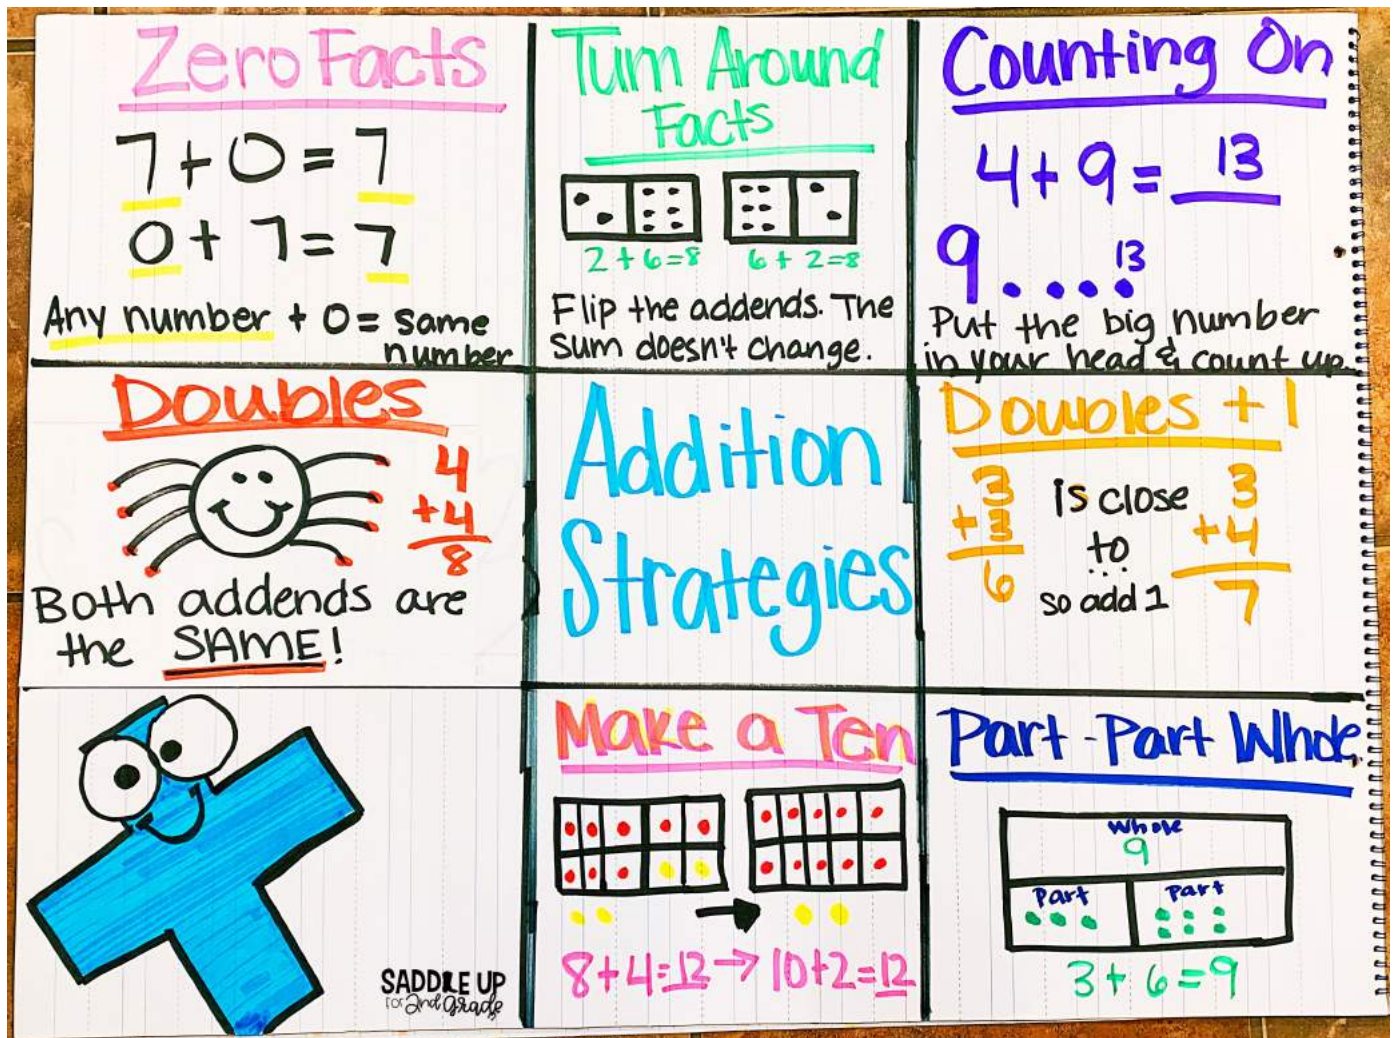 Zero Facts
7+0=7
0+7=7
Any number + 0 = same
number
Turn Around
Facts
2+6=8 6+2=8
Flip the addends. The
sum doesn't change.
Counting On
4+9= 13
9 13
Put the big number
in your head & count up.
Doubles
4
+4
8
Both addends are
the SAME!
Addition
Strategies
Doubles +1
3
+3
6
is close
to
...
so add 1
3
+4
7
SADDLE UP
for 2nd Grade
Make a Ten
8+4=12→10+2=12
Part-Part Whole
Whole
9
Part Part
3+6=9